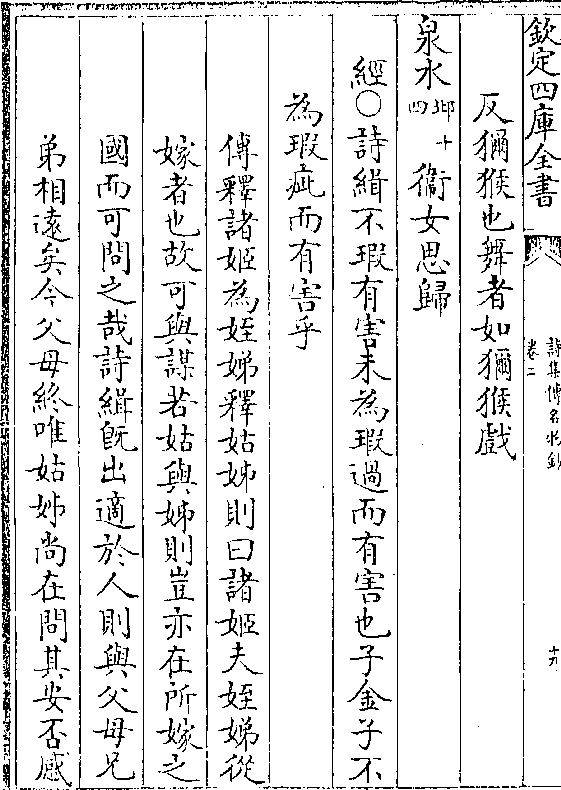 欽定四庫全書
詩集傳名物鈔
卷二
十九
反獼猴也舞者如獼猴戲
泉水邶十四衞女思歸
經○詩緝不瑕有害未為瑕過而有害也子金子不
為瑕疵而有害乎
傳釋諸姬為姪娣釋姑姊則曰諸姬夫姪娣從
嫁者也故可與謀若姑與姊則豈亦在所嫁之
國而可問之哉詩緝既出適於人則與父母兄
弟相遠矣今父母終唯姑姊尚在問其安否感